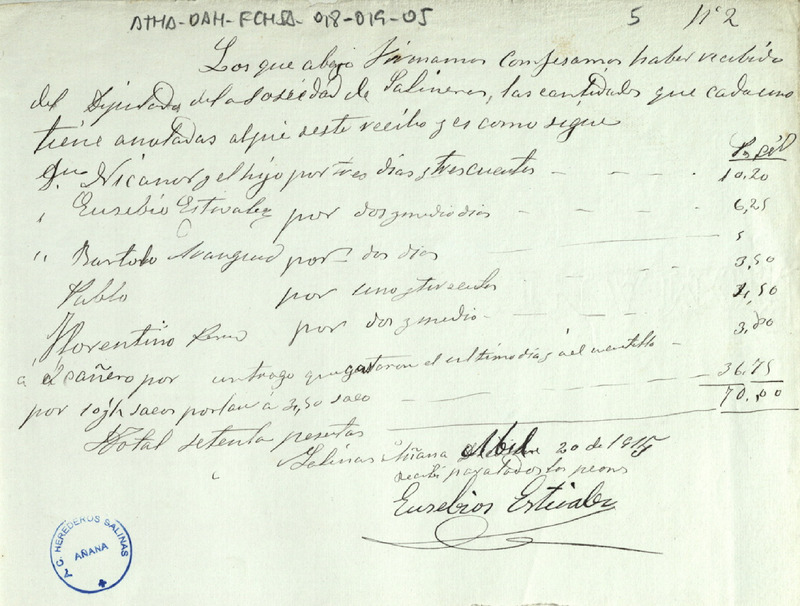 ATHA-DAH-FCHSA-018-019-05 5 Nº2
Los que abajo firmamos confesamos haber recibido
del Diputado de la Sociedad de Salineros, las cantidades que cada uno
tiene anotadas al pie deste recibo y es como sigue
Nicanor y el hijo por tres dias y tres cuartos - - - 10,20
" Eusebio Estivalez por dos y medio dias - - - 6,25
" Bartolo por dos dias 5
Pablo por uno y tres cuartos 3,50
Florentino por dos y medio - 4,50
a el cañero por un trago que gastaron el ultimo dia - 3,80
por sacos portlan á 3,50 saco - - - 36,75
Total setenta pesetas 70,00
Salinas Añana Abril 20 de 1915
recibi para todos los peones
Eusebios Estivalez
A.C. HEREDEROS SALINAS
AÑANA